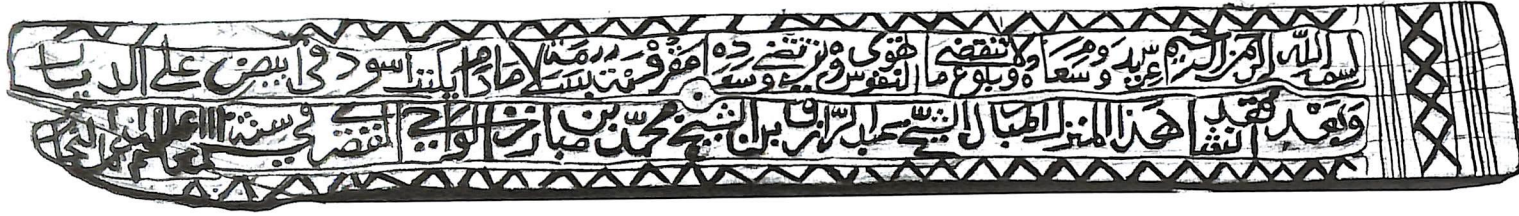 بسم الله الرحمن الرحيم عز يدوم وسعادة لا تنقضي وبلوغ ما تهوى النفوس وترتضيه وسعده مقرونة بسلامة ما دام يكتب اسود في ابيض على الدنيا
وبعد فقد انشا هذا المنزل المبارك الشيخ عبد الرزاق بن الشيخ محمد بن مبارك في سنة